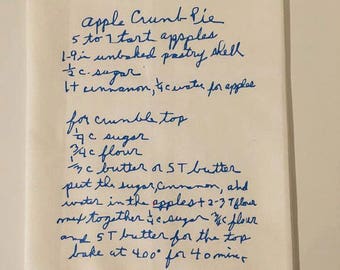 apple Crumb Pie
5 to 7 tart appples
1-9 in unbaked pastry shell
½ c. sugar
1 t cinnamon, ¼ c water for apples
for crumble top
¼ c sugar
¾ c flour
⅓ c butter or 5 T butter
put the sugar, cinnamon, and
water in the apples + 2-3 T flour
mix together ¼ c sugar ¾ c flour
and 5 T butter for the top
bake at 400° for 40 mins